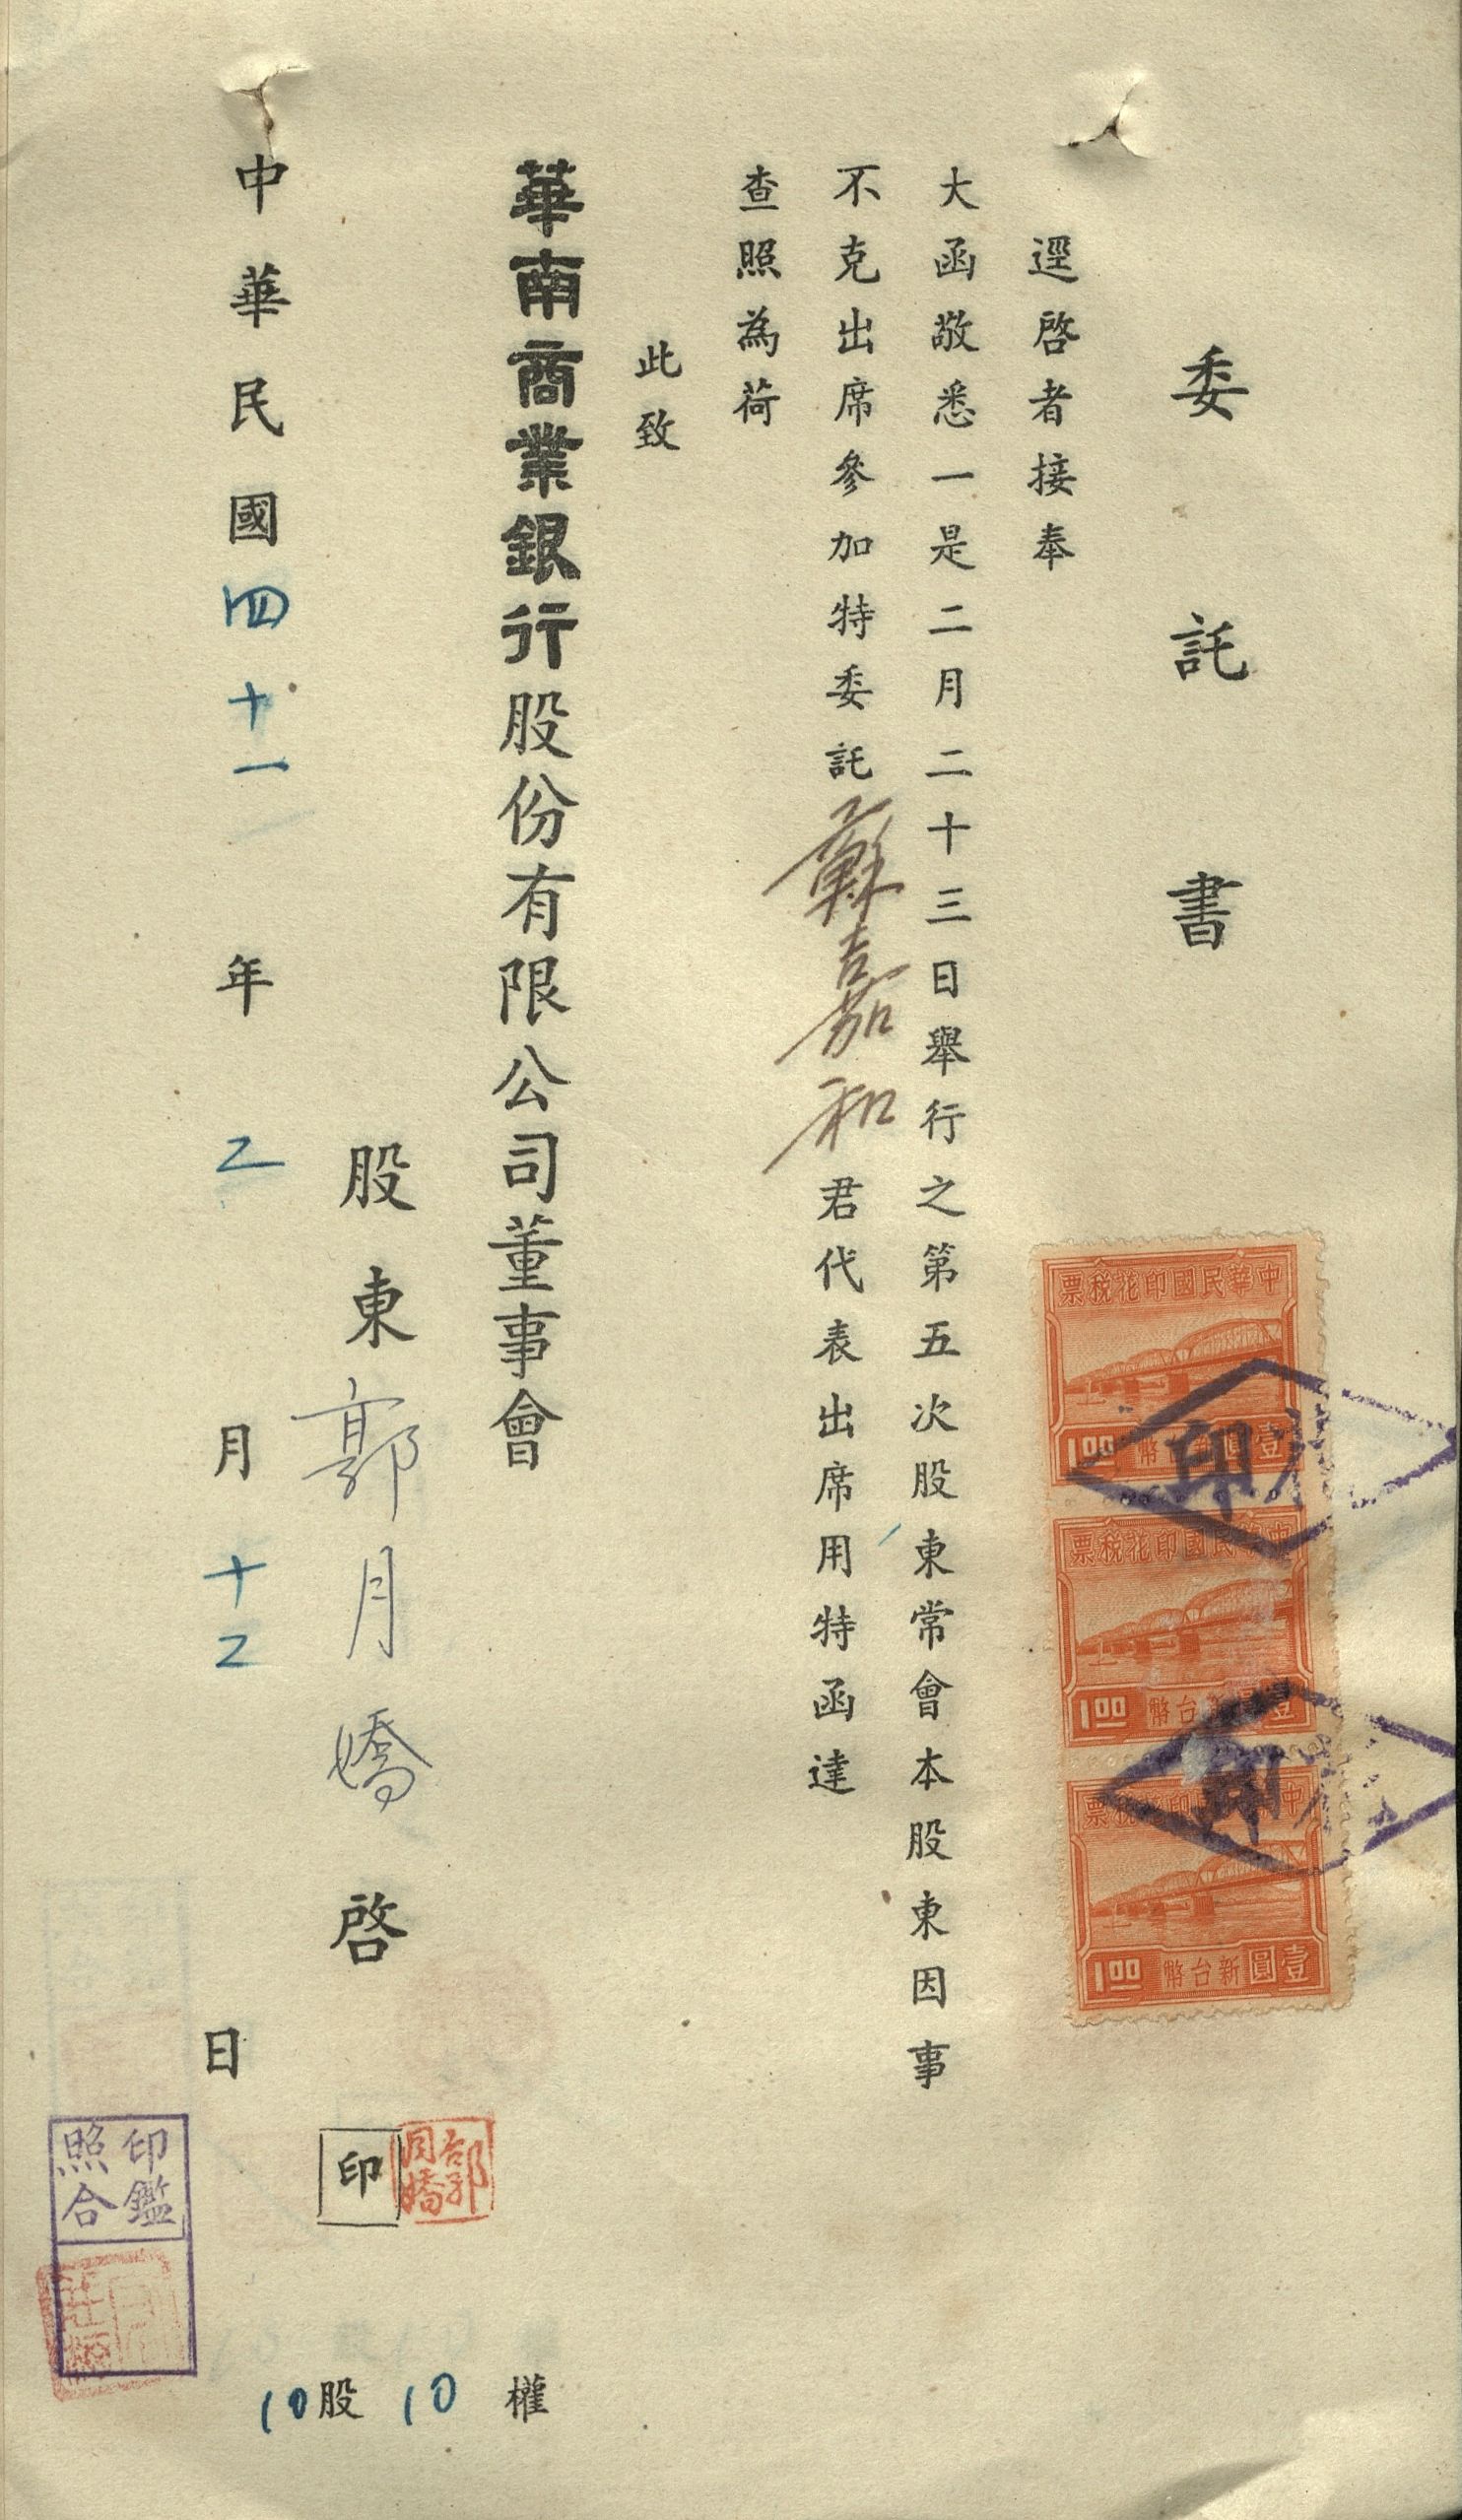 委託書
逕啓者接奉
大函敬悉一是二月二十三日舉行之第五次股東常會本股東因事
不克出席參加特委託蘇嘉和君代表出席用特函達
查照為荷
此致
華南商業銀行股份有限公司董事會
股東郭月嬌啓
印
郭月嬌
中華民國四十一年二月十二日
10股10權
印鑑照合
票税花印國民華中
1.00 幣台新圓壹
票税花印國民華中
1.00 幣台新圓壹
票税花印國民華中
1.00 幣台新圓壹
印
印